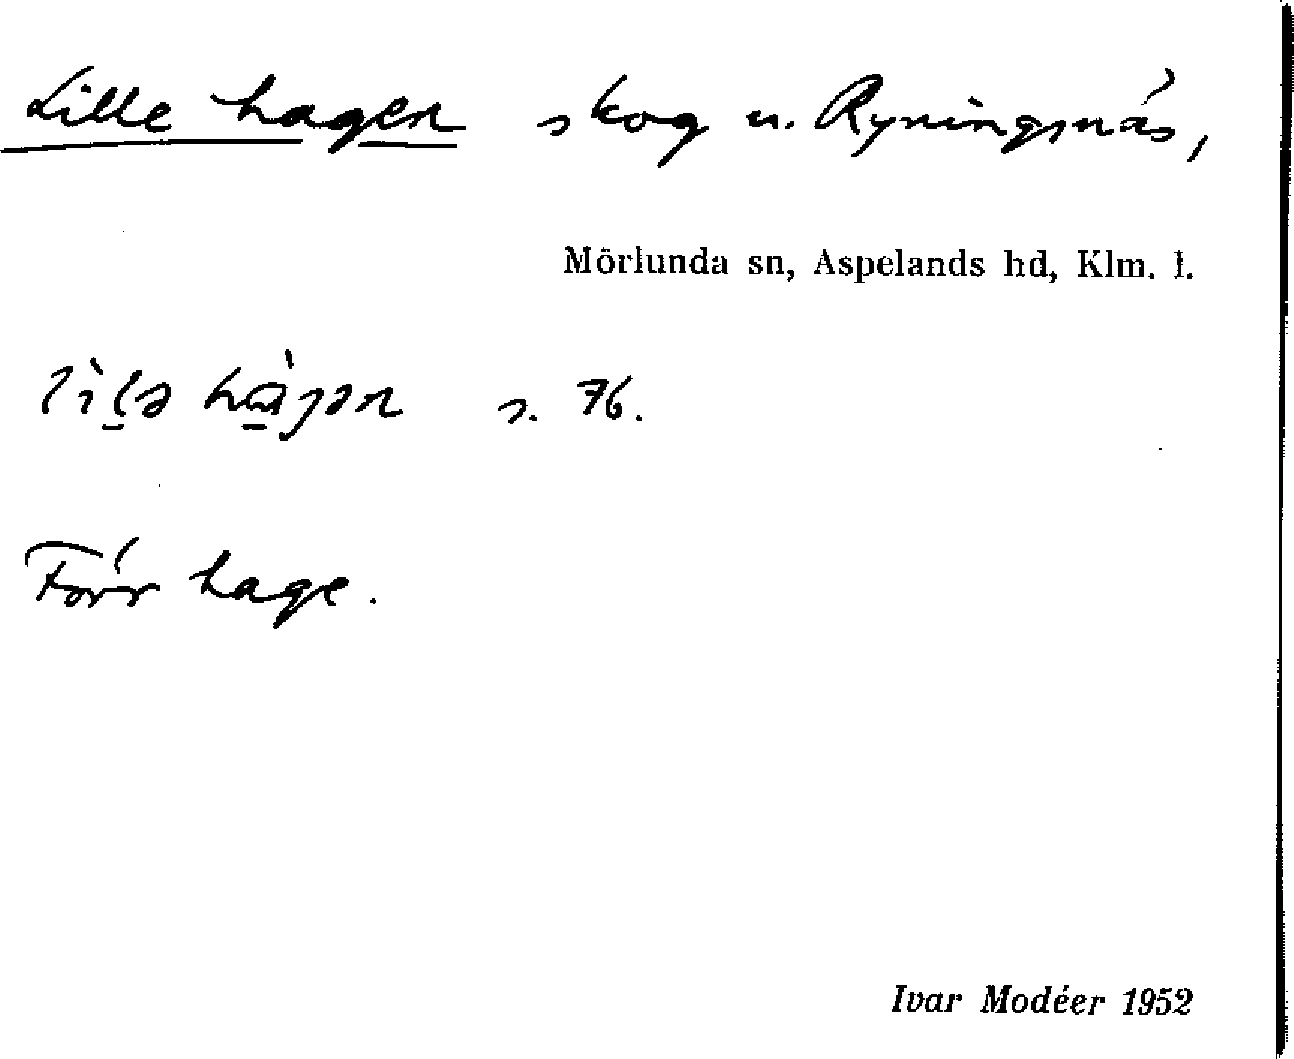 Lille hagen skog u. Ryningsnäs,
Mörlunda sn, Aspelands hd, Klm. l.
s. 76.
Förr hage.
Ivar Modéer 1952